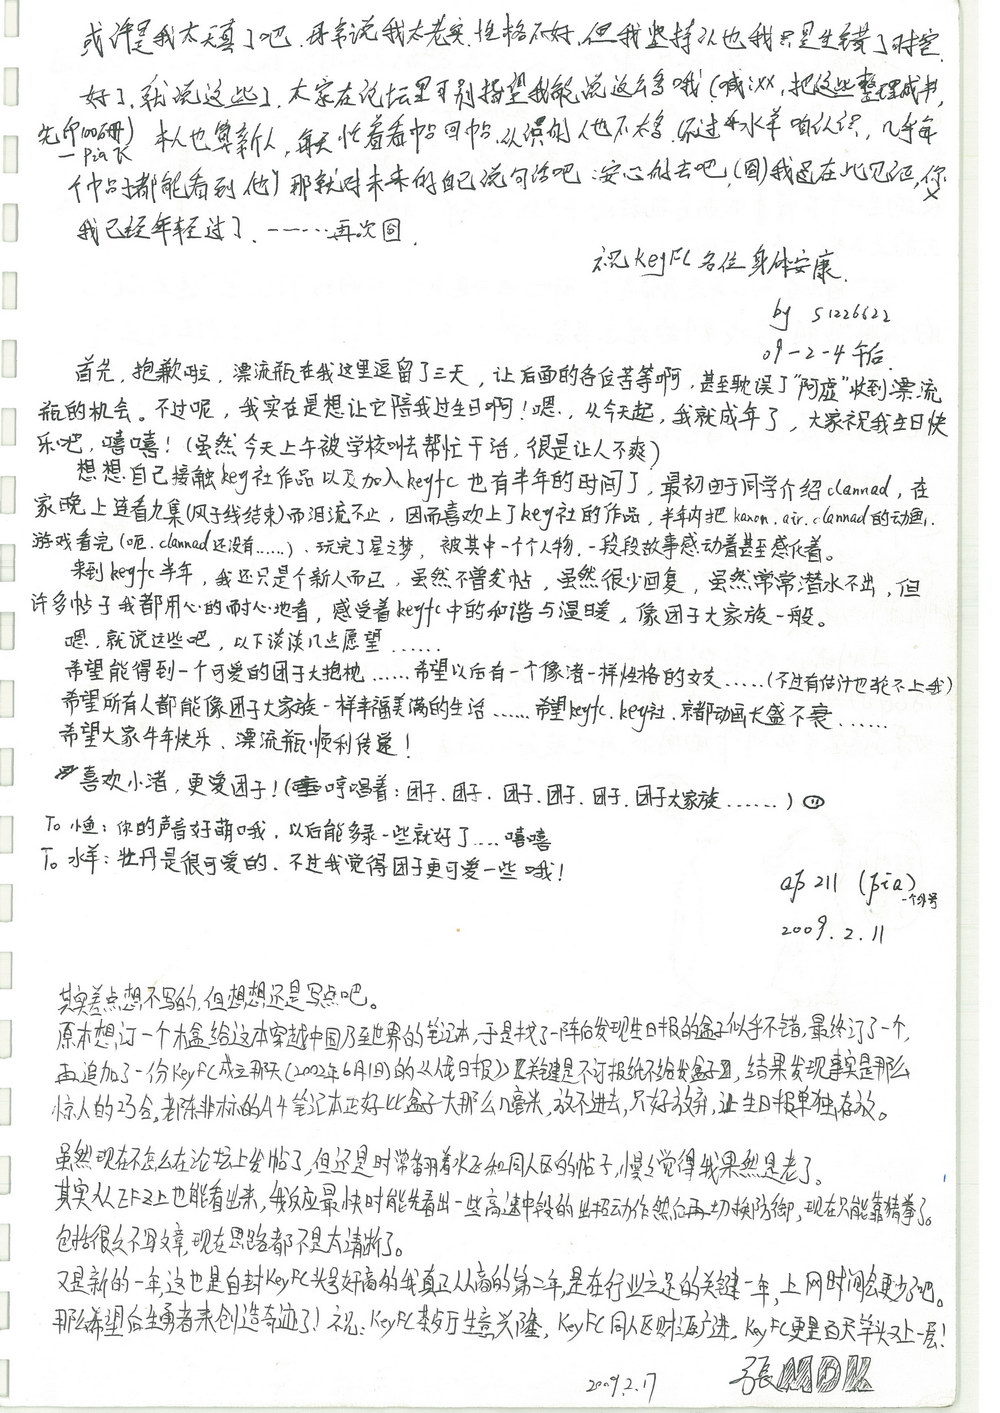 或许是我太天真了吧，母亲说我太老实，性格不好，但我坚持认也我只是生错了时空.
好了，我就说这些了，大家在论坛里可别指望我能说这么多哦(喊xx，把这些整理成书，
先印100万册) 本人也算新人，每天忙着看帖回帖，认识的人也不太多，不过水羊咱认识，几乎每
一pia飞
个帖子都能看到他) 那就对未来的自己说句话吧：安心的去吧，(回)我还在此见证，你
我已经年轻过了、一一……再次回.
祝KeyFC各位身体安康.
by s1226622
09-2-4 午后
首先，抱歉啦，漂流瓶在我这里逗留了三天，让后面的各位苦等啊，甚至耽误了“阿虚”收到漂流
瓶的机会。不过呢，我实在是想让它陪我过生日啊！嗯，从今天起，我就成年了，大家祝我生日快
乐吧，嘻嘻！(虽然今天上午被学校叫去帮忙干活，很是让人不爽)
想想自己接触key社作品以及加入keyfc也有半年的时间了，最初由于同学介绍clannad，在
家晚上连看九集(风子线结束)而泪流不止，因而喜欢上了key社的作品，半年内把kanon.air.clannad的动画、
游戏看完(呃.clannad还没有……)、玩完了星之梦，被其中一个个人物，一段段故事感动着甚至感化着。
来到keyfc半年，我还只是个新人而已，虽然不曾发帖，虽然很少回复，虽然常常潜水不出，但
许多帖子我都用心的耐心地看，感受着keyfc中的和谐与温暖，像团子大家族一般。
嗯，就说这些吧，以下谈谈几点愿望……
希望能得到一个可爱的团子大抱枕……希望以后有一个像渚一样性格的女友……(不过有估计也轮不上我)
希望所有人都能像团子大家族一样幸福美满的生活……希望keyfc.key社、京都动画长盛不衰……
希望大家牛年快乐、漂流瓶顺利传递！
喜欢小渚，更爱团子！(哼唱着：团子、团子、团子、团子、团子、团子大家族……)
To 小鱼：你的声音好萌哦，以后能多录一些就好了……嘻嘻
To 水羊：牡丹是很可爱的、不过我觉得团子更可爱一些哦！
ap211 (pia)
一个外号
2009.2.11
其实差点想不写的，但想想还是写点吧。
原本想订一个木盒给这本穿越中国乃至世界的笔记本，于是找了一阵后发现生日报的盒子似乎不错，最终订了一个，
再追加了一份KeyFC成立那天(2002年6月1日)的《人民日报》〖关键是不订报纸不给发盒子〗，结果发现事实是那么
惊人的巧合，老陈非标的A4笔记本正好比盒子大那么几毫米，放不进去，只好放弃，让生日报单独存放。
虽然现在不怎么在论坛上发帖了，但还是时常翻着水区和同人区的帖子，慢慢觉得我果然是老了。
其实从EFZ上也能看出来，我反应最快时能先看出一些高速中段的出招动作然后再切换防御，现在只能靠猜拳了。
包括很久不写文章，现在思路都不是太清晰了。
又是新的一年，这也是自封KeyFC头号好高的我真正从高的第二年，是在行业立足的关键一年，上网时间会更少了吧。
那么希望后生勇者来创造奇迹了！祝：KeyFC茶餐厅生意兴隆，KeyFC同人区财源广进，KeyFC更是百尺竿头又上一层！
2009.2.17 張MDK